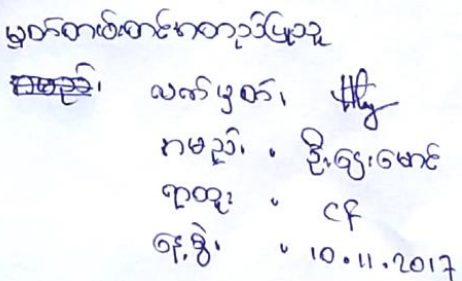 မှတ်တမ်းတင်အတည်ပြုသူ
လက်မှတ်၊
အမည်၊ ။ ဦးဌေးမောင်
ရာထူး ။ CF
နေ့စွဲ၊ ။ 10.11.2017